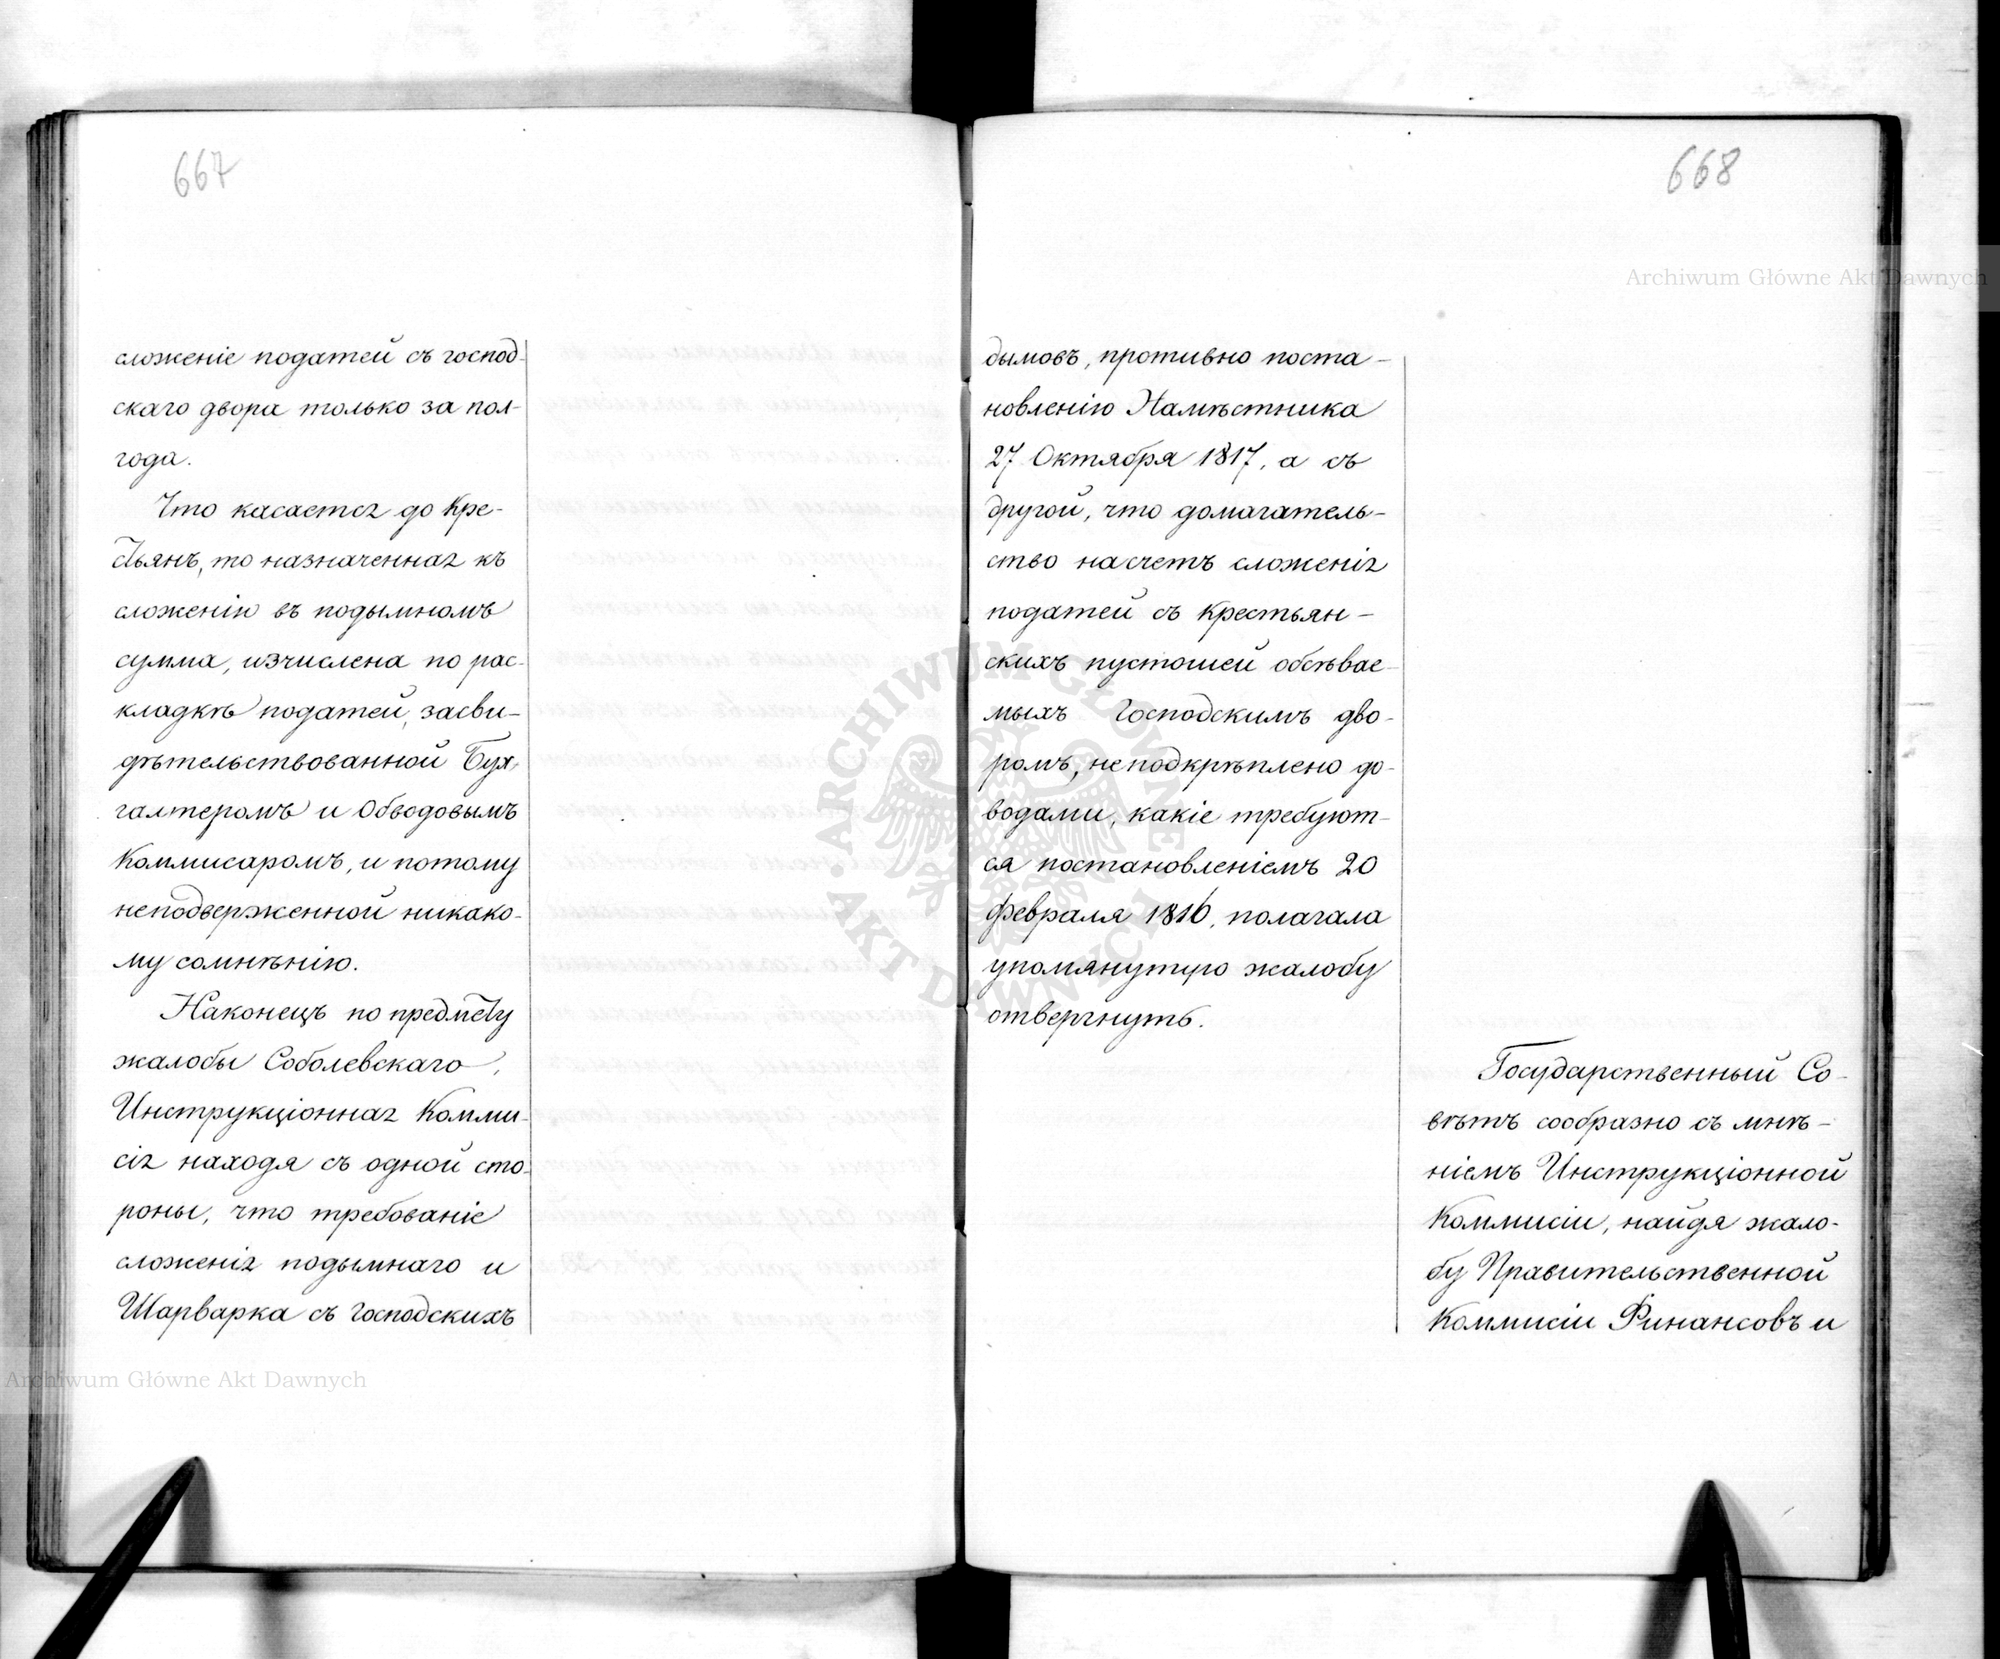 667
сложеніе податей съ господ-
скаго двора только за пол-
года.
Что касается до Кре-
стьянъ, то назначенная къ
сложенію въ подымномъ
сумма, изчислена по рас-
кладкѣ податей, засви-
дѣтельствованной Бух-
галтеромъ и Обводовымъ
Коммисаромъ, и потому
неподверженной никако-
му сомнѣнію.
Наконецъ по предмету
жалобы Соболевскаго,
Инструкціонная Комми-
сія находя съ одной сто-
роны, что требованіе
сложенія подымнаго и
Шарварка съ Господскихъ
668
дымовъ, противно поста-
новленію Намѣстника
27 Октября 1817, а съ
другой, что домагатель-
ство насчетъ сложенія
податей съ Крестьян-
скихъ пустошей обсѣвае-
мыхъ Господскимъ дво-
ромъ, неподкрѣплено до-
водами, какіе требуют-
ся постановленіемъ 20
февраля 1816, полагала
упомянутую жалобу
отвергнуть.
Государственный Со-
вѣтъ сообразно съ мнѣ-
ніемъ Инструкціонной
Коммисіи, найдя жало-
бу Правительственной
Коммисіи Финансовъ и
Archiwum Główne Akt Dawnych
ARCHIWUM GŁÓWNE AKT DAWNYCH
Archiwum Główne Akt Dawnych